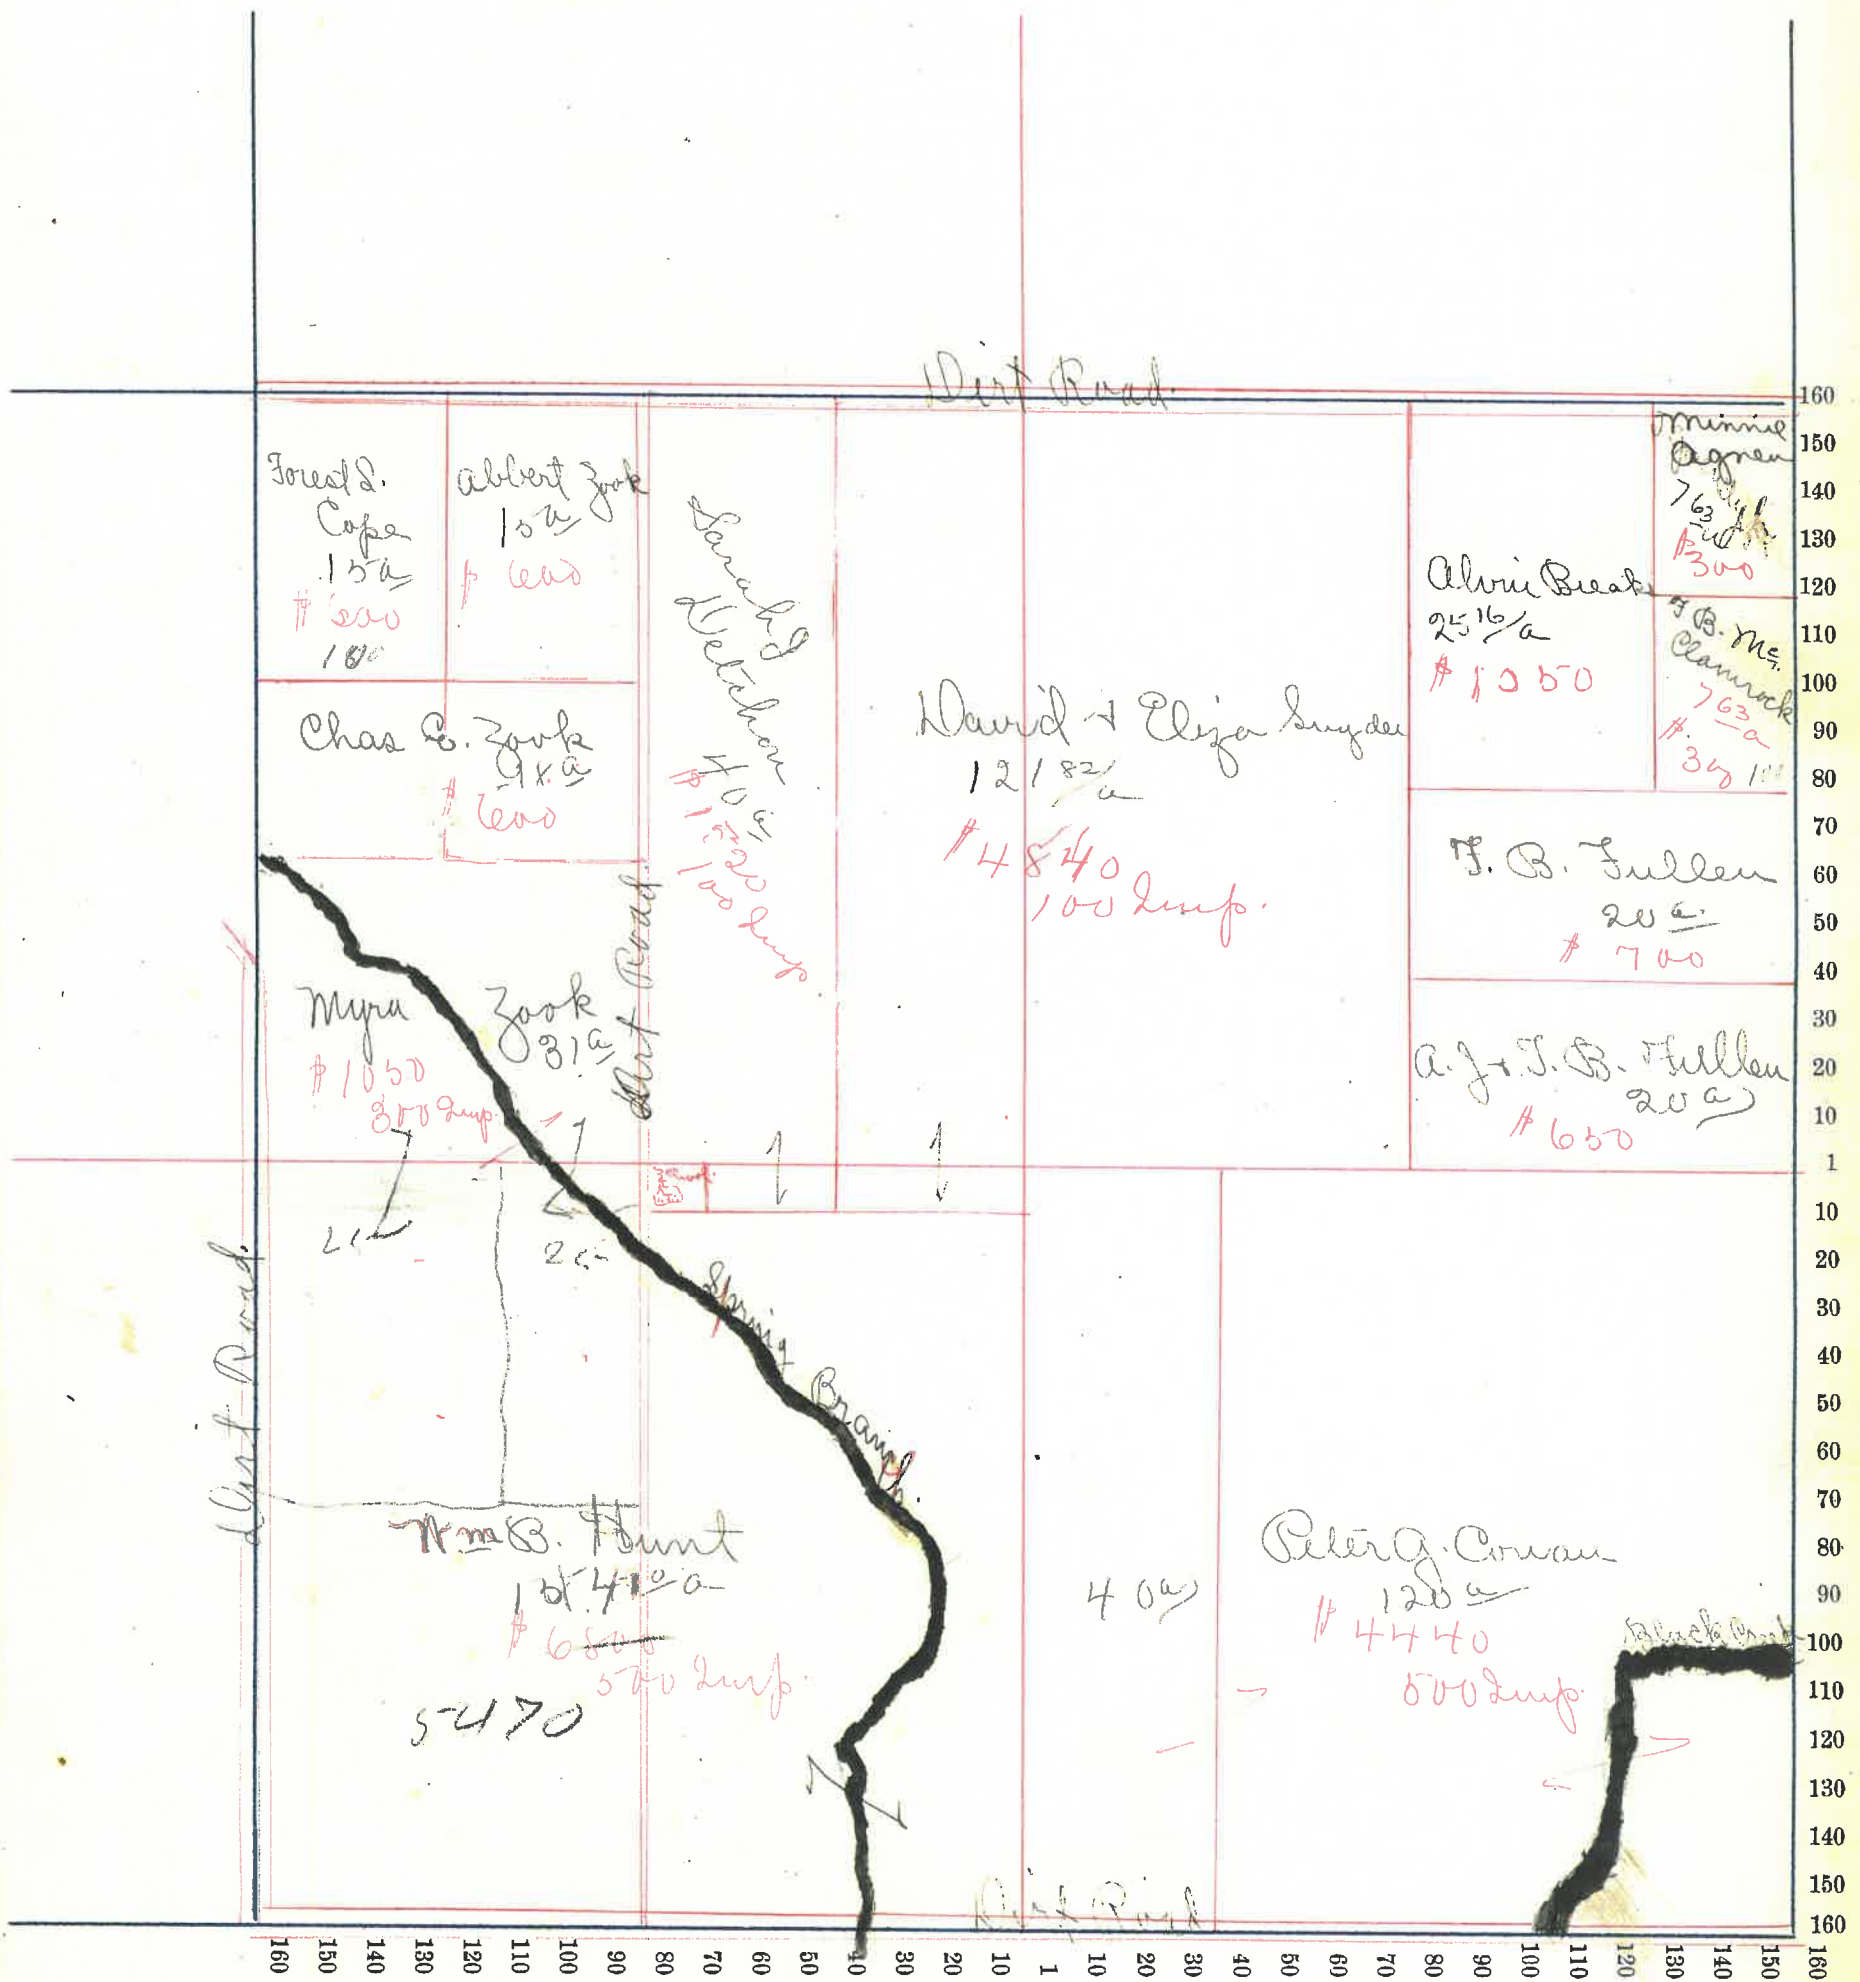 Dirt Road.
Forest S.
Cope
15a
100
Albert Zook
15a
$ 600
Sarah J
Detchon
40 a
$ 1520
100 Imp
David & Eliza Snyder
121 82/a
$ 4840
100 Imp.
Alvin Breaks
25 16/a
$ 1050
Minnie
Agnew
7 63
$ 300
F. B. Mc.
Clamrock
7 63 a
$
100
Chas E. Zook
$ 600
F. B. Fullen
20 a
$ 700
A. J. & F. B. Fullen
20 a
$ 650
Myra Zook
31 a
$ 1050
300 Imp.
Dirt Road.
Dirt Road.
Spring Branch.
Wm B. Hunt
$ 6800
500 Imp.
5470
40 a
Peter G. Cowan
120 a
$ 4440
500 Imp.
Black Creek
Dirt Road
160
150
140
130
120
110
100
90
80
70
60
50
40
30
20
10
1
10
20
30
40
50
60
70
80
90
100
110
120
130
140
150
160
160 150 140 130 120 110 100 90 80 70 60 50 40 30 20 10 1 10 20 30 40 50 60 70 80 90 100 110 120 130 140 150 160